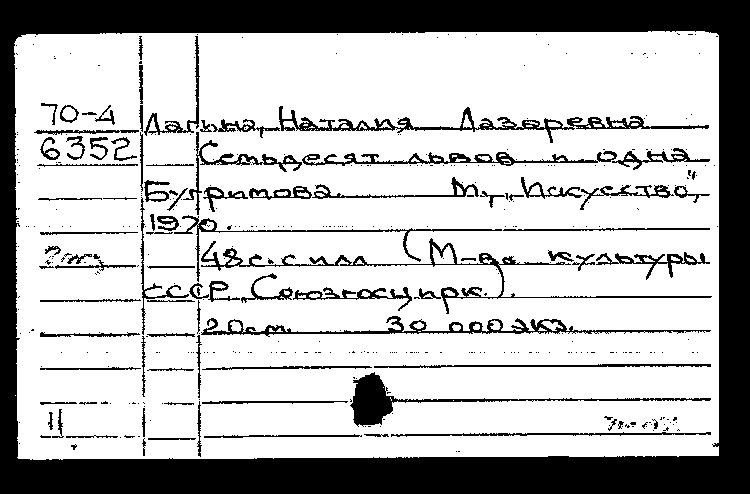 70-4 Лагина, Наталия Лазаревна
6352 Семьдесят львов и одна
Бугримова. М., „Искусство",
1970.
48 с. с илл (М-во культуры
СССР. Союзгосцирк.).
20см. 30 000 экз.
11